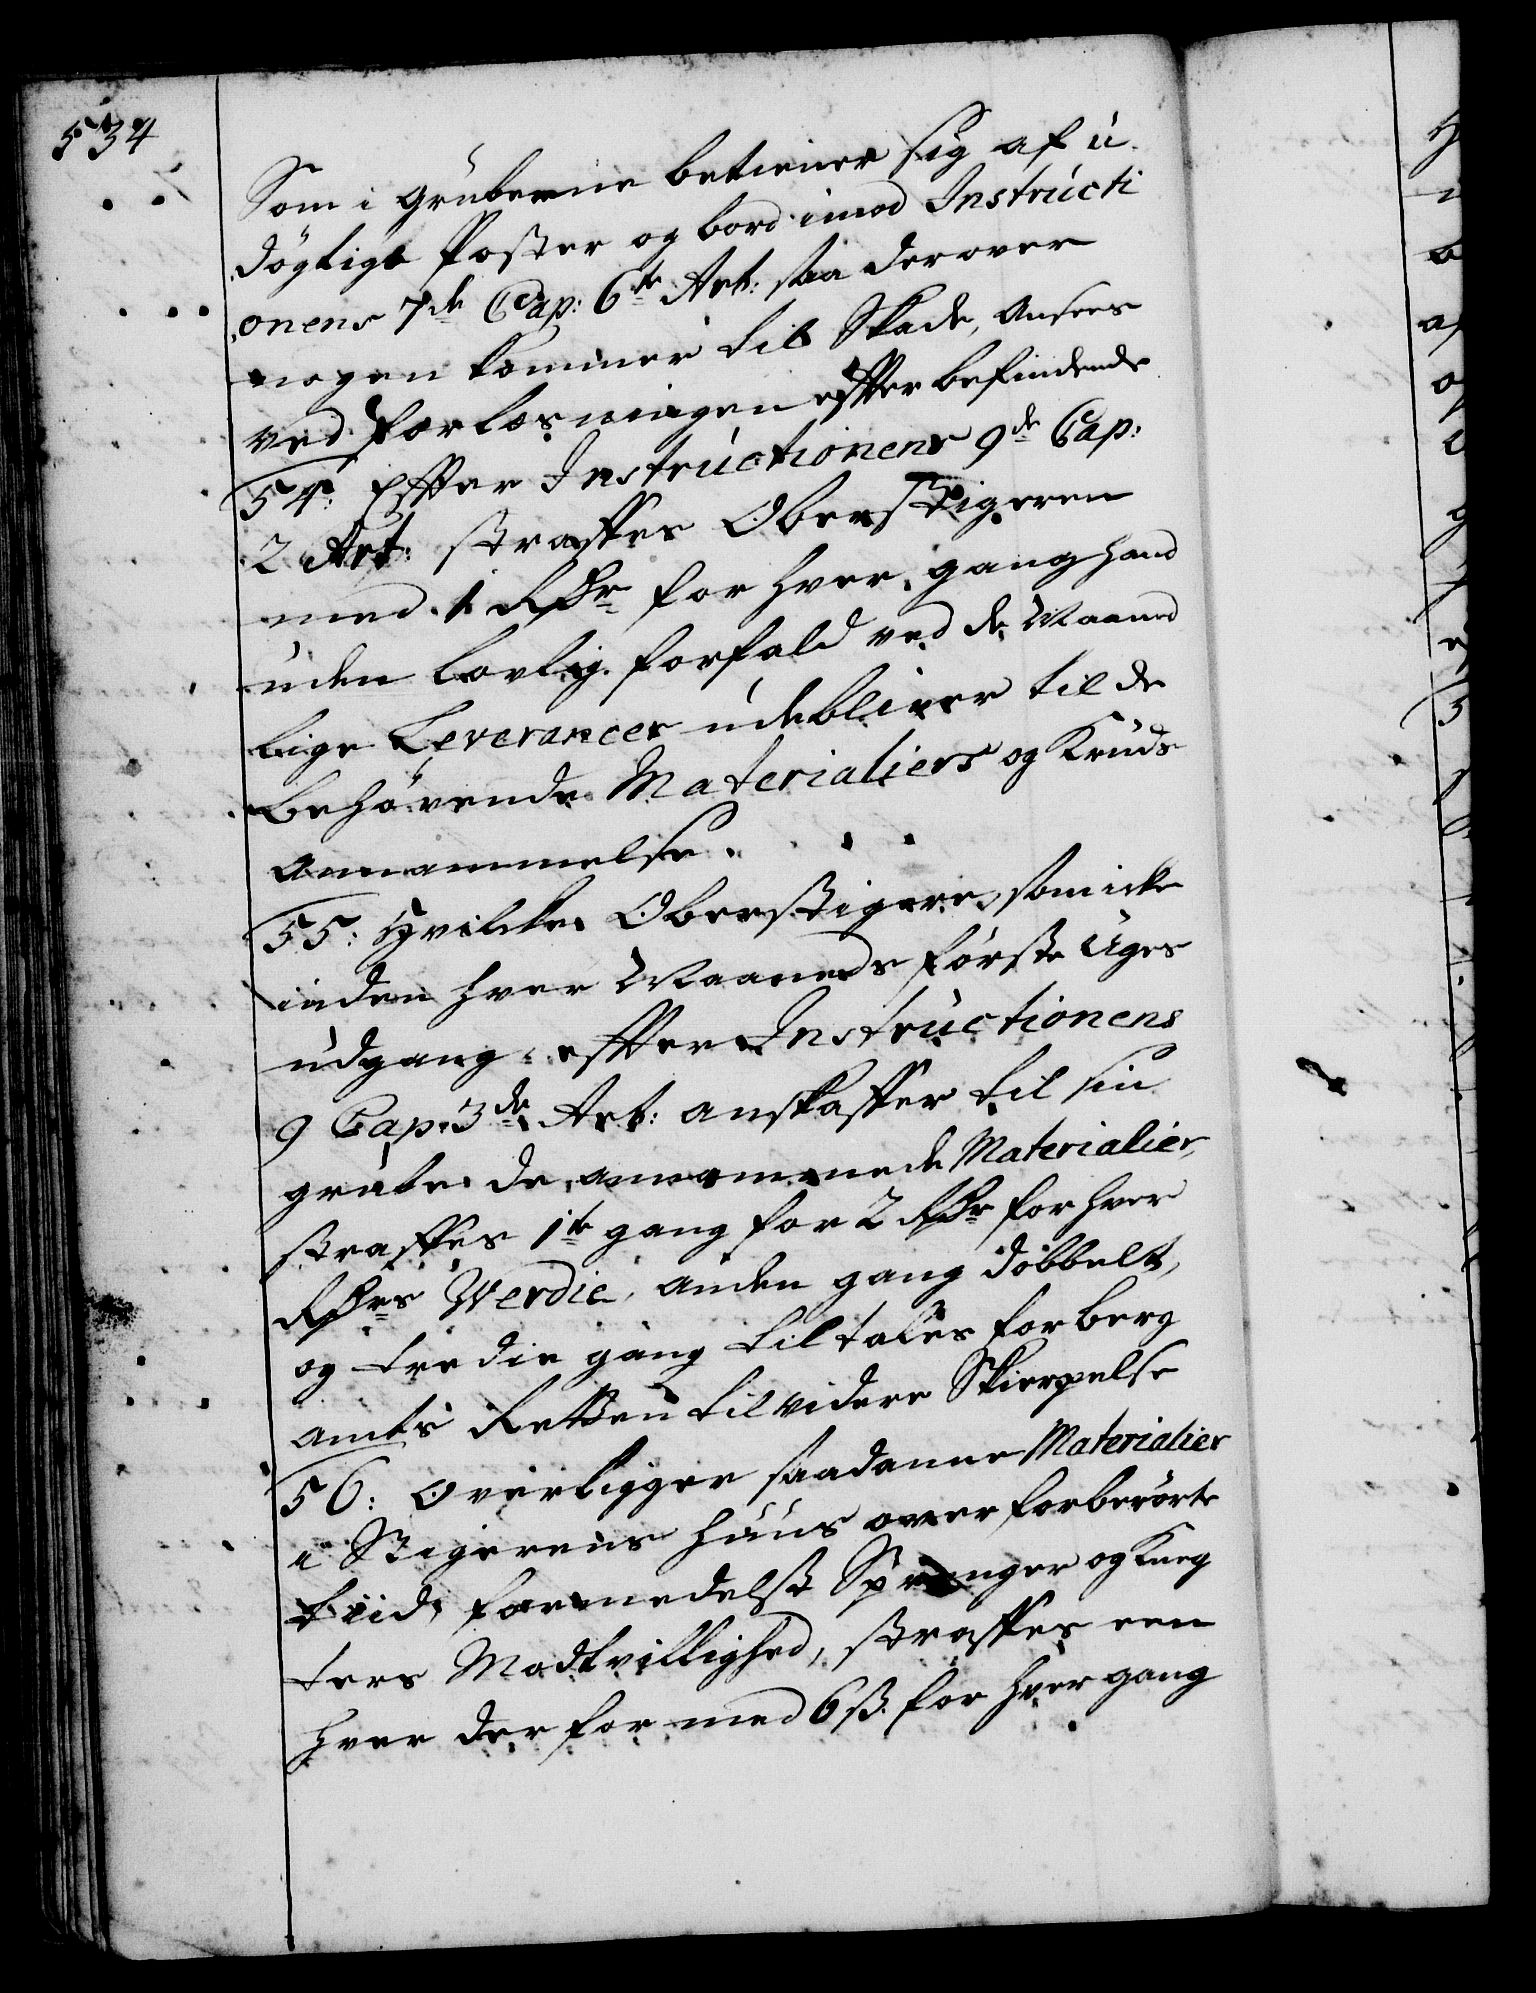 534
Som i Gruberne betiener sig af u-
døgtige Poster og bord imod Instructi
onens 7de Cap: 6te Art: saa derover
nogen kommer til Skade, ansees
ved forløsningen effter befindende
54: Effter Instructionens 9de Cap:
2 Art: straffes Oberstigeren
med 1 Rdr for hver gang hand
uden lovlig forfald ved de Maaned
lige Leverancer udebliver til de
behøvende Materialiers og Kruds
Annammelse.
55: Hvilcken Oberstigere, som icke
inden hver Maaneds første Uges
udgang effter Instructionens
9 Cap: 3de Art: anskaffer til sin
grube de annammede Materialier,
straffes 1te gang for 2 Rdr for hver
Rdrs Werdie, anden gang dobbelt,
og tredie gang tiltales for berg
amts Retten til videre Skierpelse
56: Overligger saadanne Materialier
i Stigerens huus over forberørte
tiid, formedelst Sprenger og Kneg
ters Modtvillighed, straffes een
hver derfor med 6 ß. for hver gang